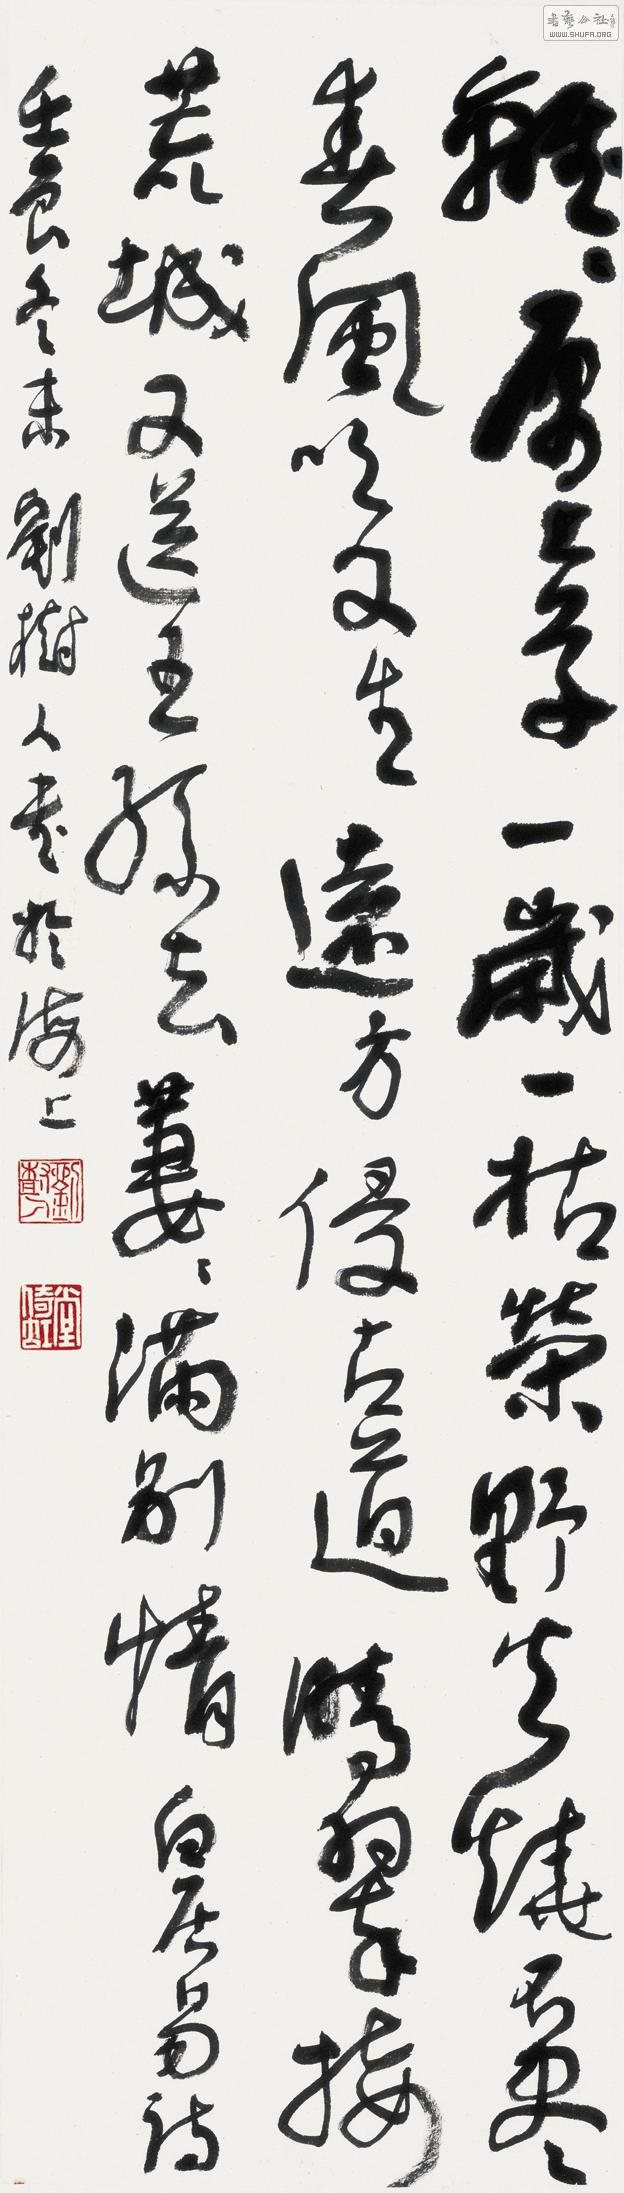 書藝公社
WWW.SHUFA.ORG
離〻原上草一歲一枯榮野火燒不盡
春風吹又生遠方侵古道晴翠接
荒城又送王孫去萋〻滿別情白居易詩
壬辰冬末劉樹人書於海上
劉樹人
倚虹堂